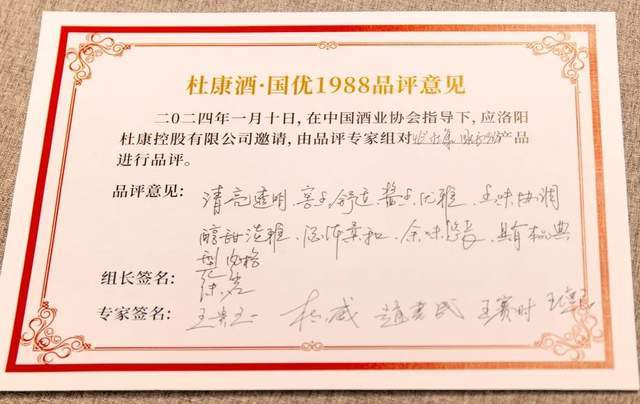 杜康酒·国优1988品评意见
二〇二四年一月十日,在中国酒业协会指导下,应洛阳
杜康控股有限公司邀请,由品评专家组对 产品
进行品评。
品评意见: 清亮透明、窖香舒适、酱香优雅、五味协调
醇甜淡雅、酒体柔和、余味悠长、具有本品典
型风格
组长签名:
专家签名: 赵书民 王赛时